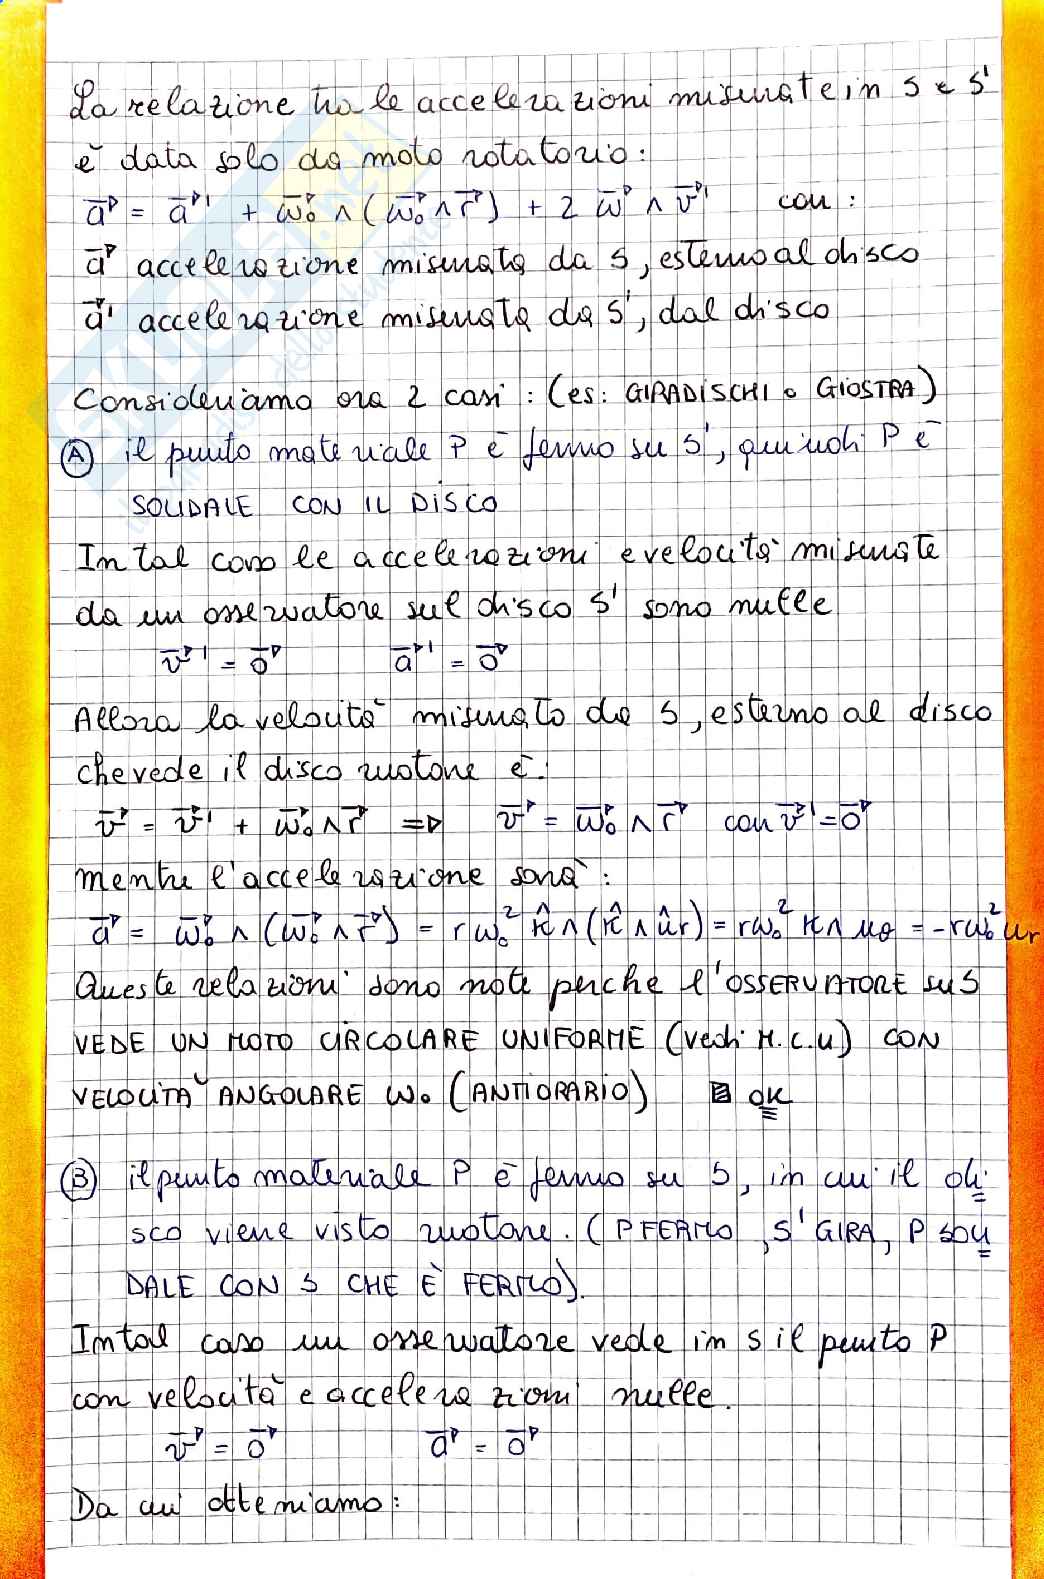 La relazione tra le accelerazioni misurate in S e S'
è data solo da moto rotatorio:
a⃗ = a⃗' + ω⃗₀ ∧ (ω⃗₀ ∧ r⃗) + 2 ω⃗ ∧ v⃗' con :
a⃗ accelerazione misurata da S, esterno al disco
a⃗' accelerazione misurata da S', dal disco
Consideriamo ora 2 casi : (es: GIRADISCHI o GIOSTRA)
Ⓐ il punto materiale P è fermo su S', quindi P è
SOLIDALE CON IL DISCO
In tal caso le accelerazioni e velocità misurate
da un osservatore sul disco S' sono nulle
v⃗' = 0⃗ a⃗' = 0⃗
Allora la velocità misurata da S, esterno al disco
che vede il disco ruotare è:
v⃗ = v⃗' + ω⃗₀ ∧ r⃗ => v⃗ = ω⃗₀ ∧ r⃗ con v⃗' = 0⃗
mentre l'accelerazione sarà:
a⃗ = ω⃗₀ ∧ (ω⃗₀ ∧ r⃗) = rω₀² k̂ ∧ (k̂ ∧ ûr) = rω₀² k ∧ uθ = -rω₀² ur
Queste relazioni sono note perche l'OSSERVATORE su S
VEDE UN MOTO CIRCOLARE UNIFORME (vedi M.C.U) CON
VELOCITÀ ANGOLARE ω₀ (ANTIORARIO) OK
Ⓑ il punto materiale P è fermo su S, in cui il di
sco viene visto ruotare. (P FERMO, S' GIRA, P SOLI
DALE CON S CHE È FERMO).
In tal caso un osservatore vede in S il punto P
con velocità e accelerazioni nulle.
v⃗ = 0⃗ a⃗ = 0⃗
Da cui otteniamo: